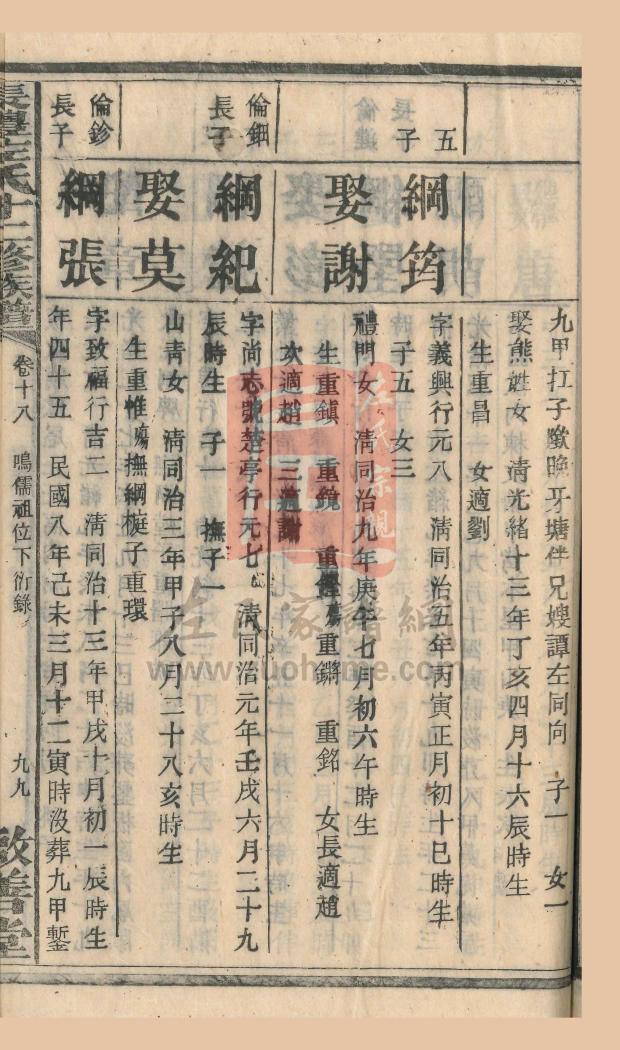 九甲扛子墩晚牙塘伴兄嫂譚左同向 子一 女一
娶熊姓女 清光緒十三年丁亥四月十六辰時生
生重昌 女適劉
五子
綱筠
字義興行元八 清同治五年丙寅正月初十巳時生
子五 女三
娶謝
禮門女 清同治九年庚午七月初六午時生
生重鎮 重鏡 重鏗殤 重鏘 重銘 女長適趙
次適趙 三適謝
倫鈿長子
綱紀
字尚志號楚亭行元七 清同治元年壬戌六月二十九
辰時生 子一 撫子一
娶莫
山青女 清同治三年甲子八月二十八亥時生
生重惟殤撫綱梃子重環
倫鉁長子
綱張
字致福行吉二 清同治十三年甲戌十月初一辰時生
年四十五 民國八年己未三月十二寅時沒葬九甲塹
長澧左氏十二修族譜 卷十八 鳴儒祖位下衍錄 九九 敦善堂
左氏宗親
左氏家譜網
www.zuohome.com